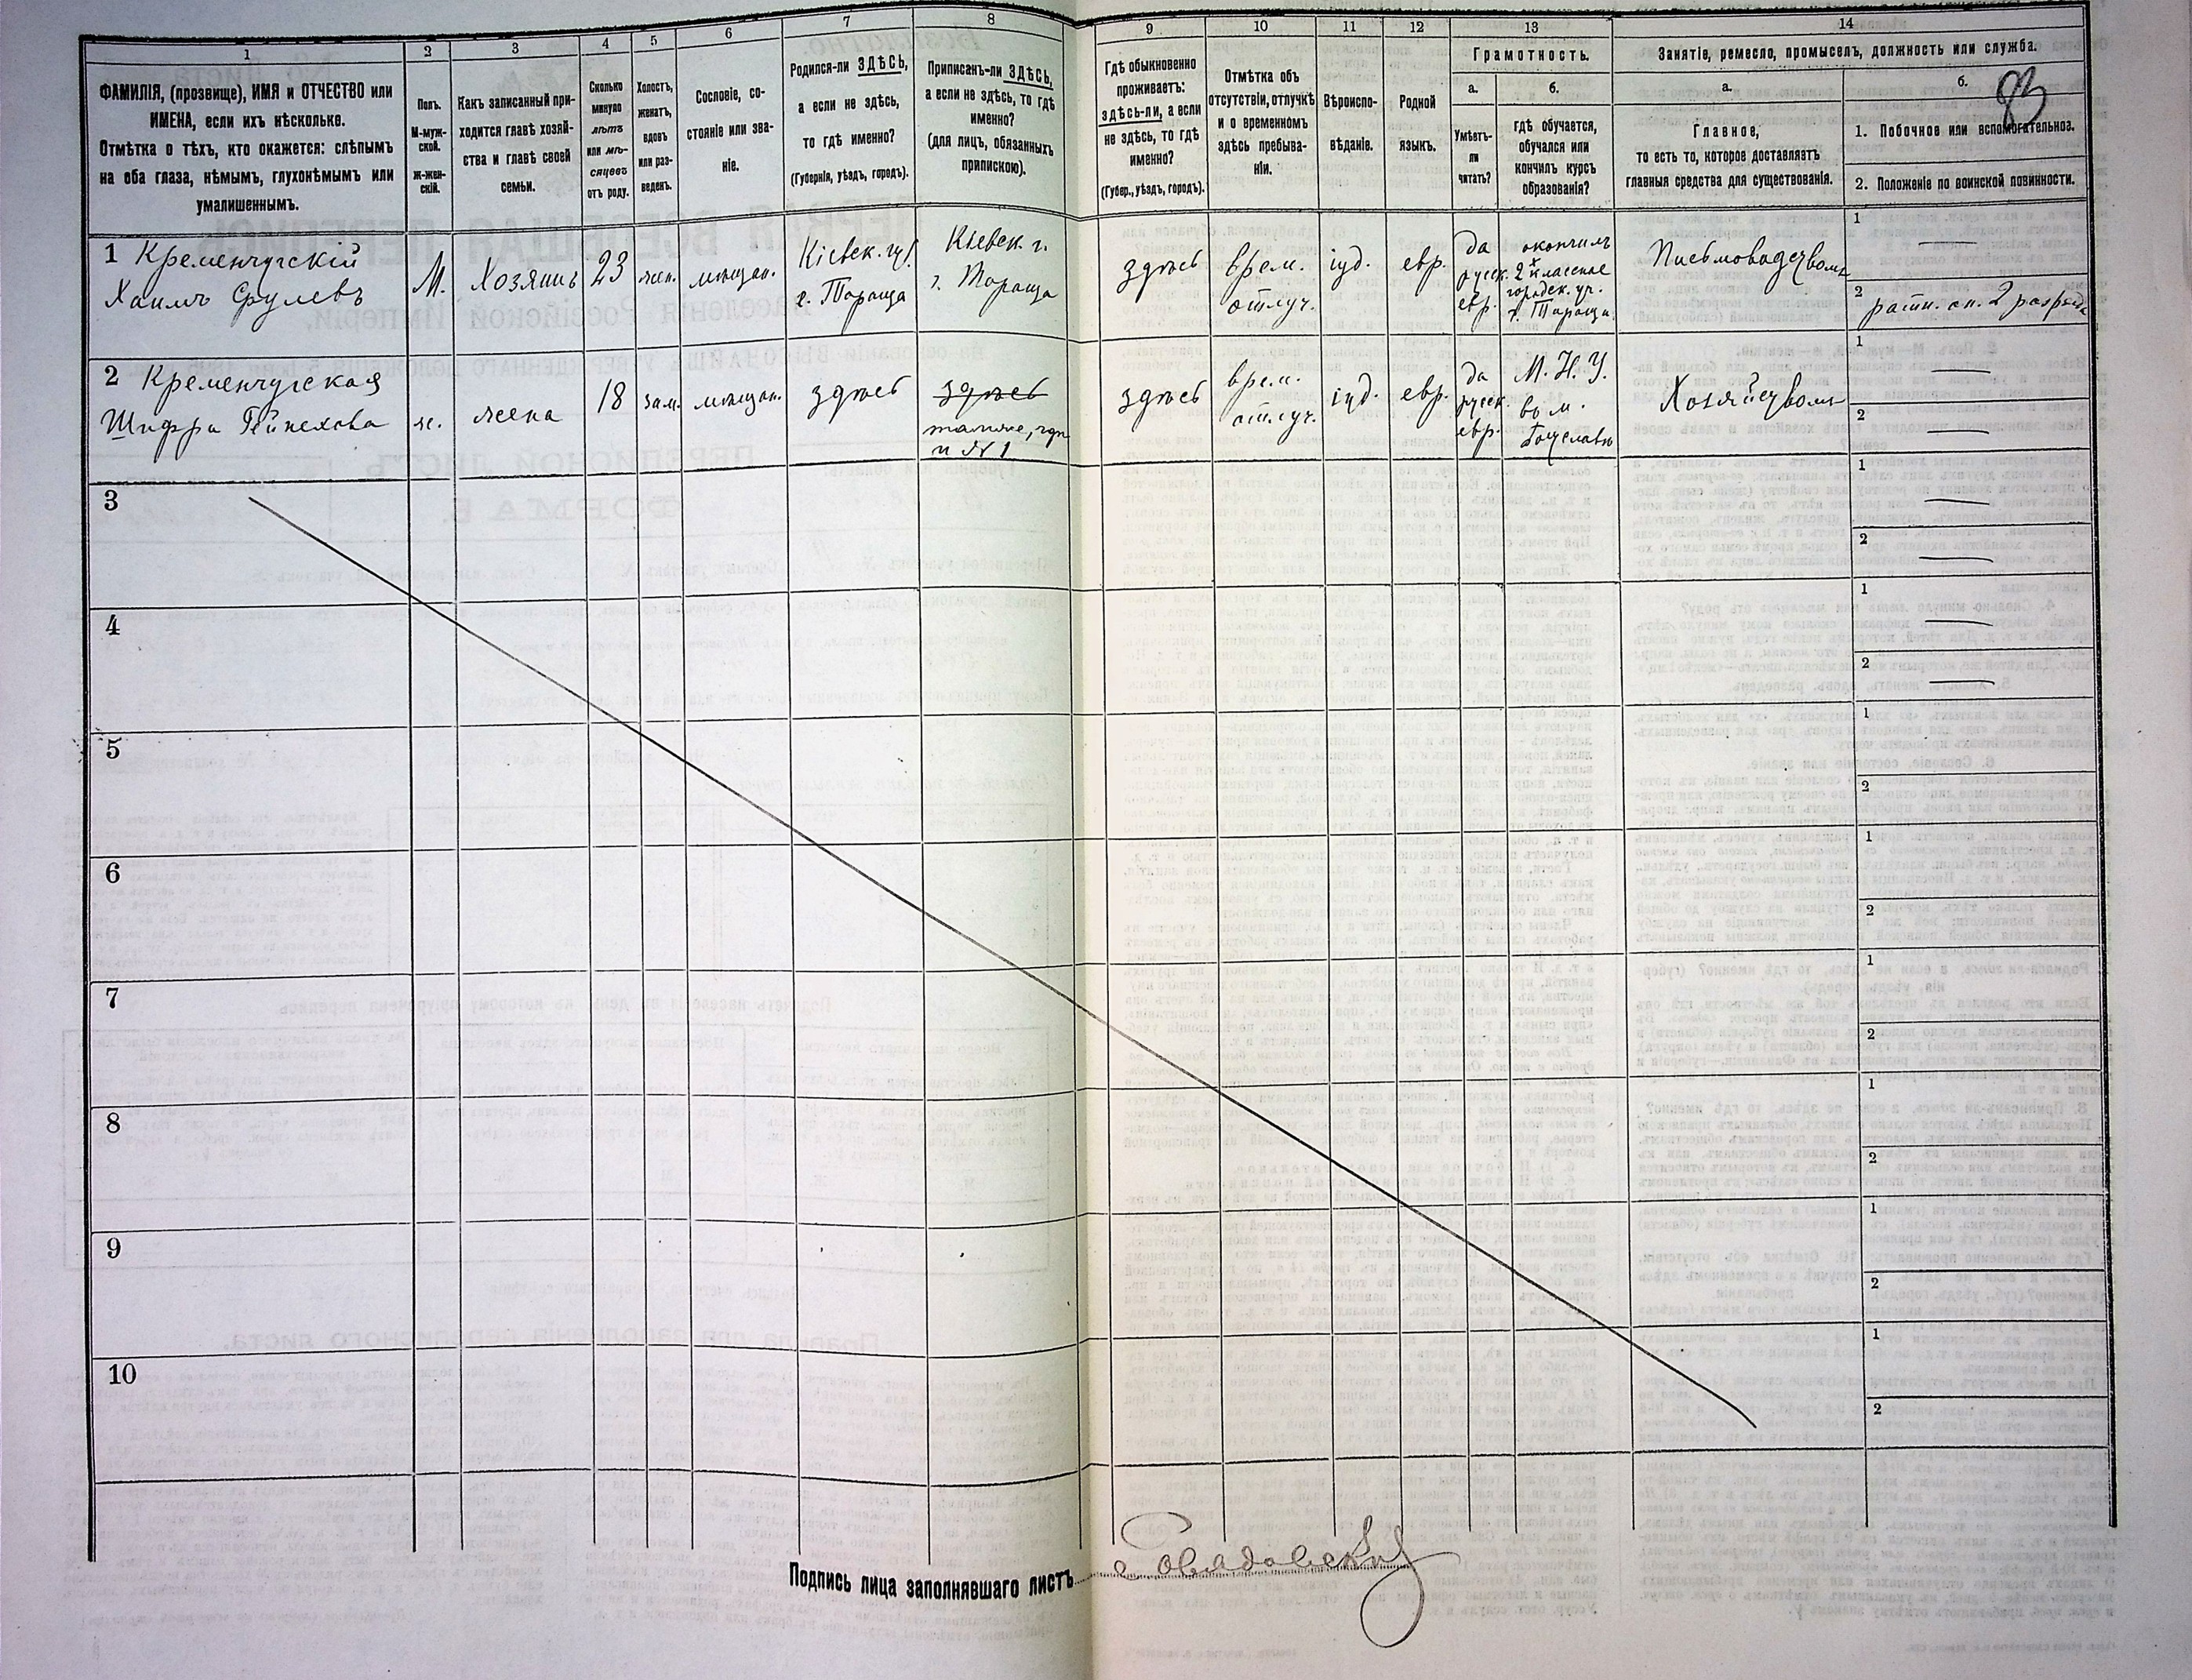 1
ФАМИЛІЯ, (прозвище), ИМЯ и ОТЧЕСТВО или
ИМЕНА, если ихъ нѣсколько.
Отмѣтка о тѣхъ, кто окажется: слѣпымъ
на оба глаза, нѣмымъ, глухонѣмымъ или
умалишеннымъ.
2
Полъ.
М-муж-
ской.
ж-жен-
скій.
3
Какъ записанный при-
ходится главѣ хозяй-
ства и главѣ своей
семьи.
4
Сколько
минуло
лѣтъ
или мѣ-
сяцевъ
отъ роду.
5
Холостъ,
женатъ,
вдовъ
или раз-
веденъ.
6
Сословіе, со-
стояніе или зва-
ніе.
7
Родился-ли ЗДѢСЬ,
а если не здѣсь,
то гдѣ именно?
(Губернія, уѣздъ, городъ).
8
Приписанъ-ли ЗДѢСЬ,
а если не здѣсь, то гдѣ
именно?
(для лицъ, обязанныхъ
припискою).
9
Гдѣ обыкновенно
проживаетъ:
здѣсь-ли, а если
не здѣсь, то гдѣ
именно?
(Губер., уѣздъ, городъ).
10
Отмѣтка объ
отсутствіи, отлучкѣ
и о временномъ
здѣсь пребыва-
ніи.
11
Вѣроиспо-
вѣданіе.
12
Родной
языкъ.
13
Грамотность.
а.
Умѣетъ-
ли
читать?
б.
гдѣ обучается,
обучался или
кончилъ курсъ
образованія?
14
Занятіе, ремесло, промыселъ, должность или служба.
а.
Главное,
то есть то, которое доставляетъ
главныя средства для существованія.
б.
93
1. Побочное или вспомогательное.
2. Положеніе по воинской повинности.
1 Кременчугскій
Хаимъ Срулевъ
М.
Хозяинъ
23
жен.
мѣщан.
Кіевск. губ.
г. Тараща
Кіевск. г.
г. Тараща
здѣсь
врем.
отлуч.
іуд.
евр.
да
русск.
евр.
окончилъ
2х классное
городск. уч.
г. Тараща.
Письмоводствомъ
1 —
2 ратн. оп. 2 разряда
2 Кременчугская
Шифра Гейнехова
ж.
жена
18
зам.
мѣщан.
здѣсь
здѣсь
тамже, гдѣ
и №1
здѣсь
врем.
отлуч.
іуд.
евр.
да
русск.
евр.
М. Н. У.
въ м.
Богуславѣ
Хозяйствомъ
1 —
2 —
3
1 —
2 —
4
1 —
2 —
5
1
2
6
1
2
7
1
2
8
1
2
9
1
2
10
1
2
Подпись лица заполнявшаго листъ